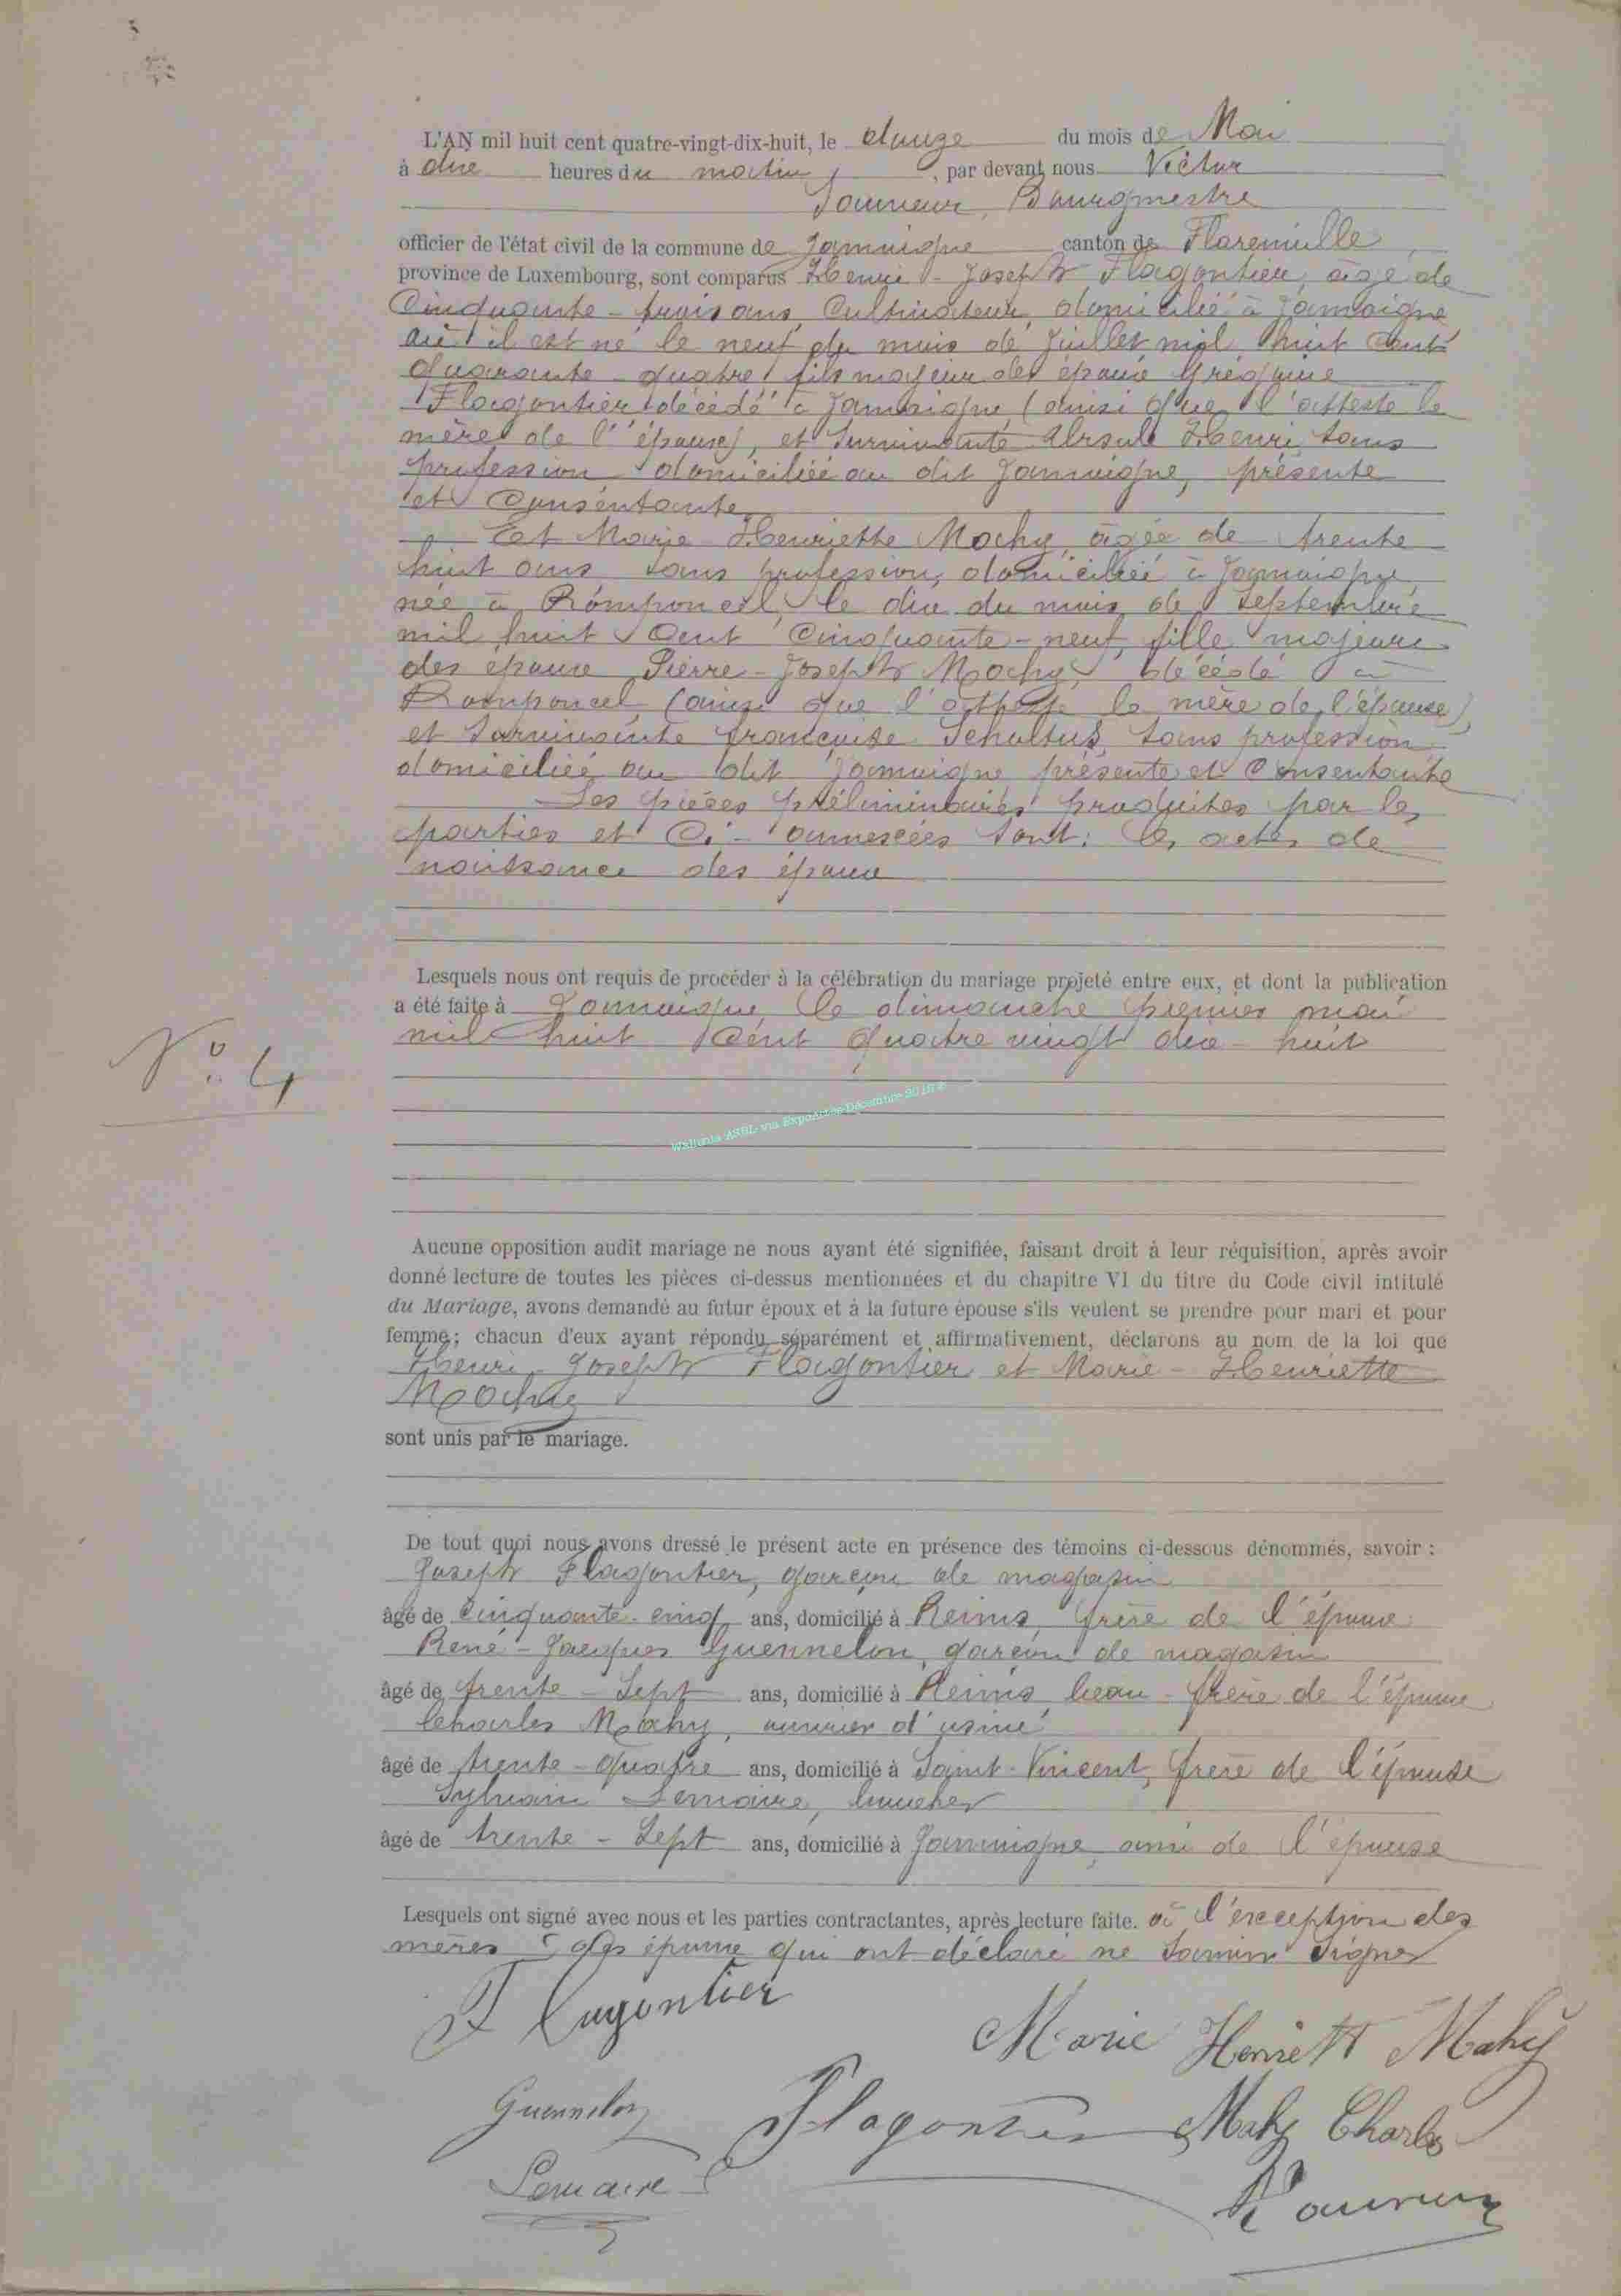 L'AN mil huit cent quatre-vingt-dix-huit, le douze du mois de Mai
à dix heures du matin, par devant nous Victor
Bourgmestre
officier de l'état civil de la commune de Jamoigne canton de Florenville
province de Luxembourg, sont comparus Henri-Joseph Flagontier, âgé de
Cinquante-trois ans, Cultivateur, domicilié à Jamoigne
où il est né le neuf du mois de Juillet mil huit cent
quarante-quatre, fils majeur des époux Grégoire
Flagontier décédé à Jamoigne (ainsi que l'atteste la
mère de l'épouse), et survivante Ursule Henri, sans
profession domiciliée au dit Jamoigne, présente
et Consentante
Et Marie-Henriette Mahy, âgée de trente
huit ans sans profession, domiciliée à Jamoigne
née à Romponcel, le dix du mois de Septembre
mil huit Cent Cinquante-neuf, fille majeure
des époux Pierre-Joseph Mahy, décédé à
Romponcel (ainsi que l'atteste la mère de l'épouse),
et survivante françoise Schultus, sans profession
domiciliée au dit Jamoigne présente et Consentante
Les pièces préliminaires produites par les
parties et Ci-annexées sont: les actes de
naissance des époux
Lesquels nous ont requis de procéder à la célébration du mariage projeté entre eux, et dont la publication
a été faite à Jamoigne, le dimanche premier mai
mil huit Cent quatre vingt dix-huit
N° 4
Wallonia ASBL via ExpoActes Décembre 2018 ©
Aucune opposition audit mariage ne nous ayant été signifiée, faisant droit à leur réquisition, après avoir
donné lecture de toutes les pièces ci-dessus mentionnées et du chapitre VI du titre du Code civil intitulé
du Mariage, avons demandé au futur époux et à la future épouse s'ils veulent se prendre pour mari et pour
femme; chacun d'eux ayant répondu séparément et affirmativement, déclarons au nom de la loi que
Henri-Joseph Flagontier et Marie-Henriette
Mahy
sont unis par le mariage.
De tout quoi nous avons dressé le présent acte en présence des témoins ci-dessous dénommés, savoir :
Joseph Flagontier, garçon de magasin
âgé de Cinquante-cinq ans, domicilié à Reims, frère de l'époux
René-Jacques Guennelon, garçon de magasin
âgé de trente-Sept ans, domicilié à Reims beau-frère de l'époux
Charles Mahy, ouvrier d'usine
âgé de trente-quatre ans, domicilié à Saint-Vincent, frère de l'épouse
Sylvain Lemaire, boucher
âgé de trente-Sept ans, domicilié à Jamoigne, ami de l'épouse
Lesquels ont signé avec nous et les parties contractantes, après lecture faite. à l'exception des
mères des époux qui ont déclaré ne savoir signer
Flagontier
Marie Henriett Mahy
Guennelon Flagontier Mahy Charles
Lemaire S